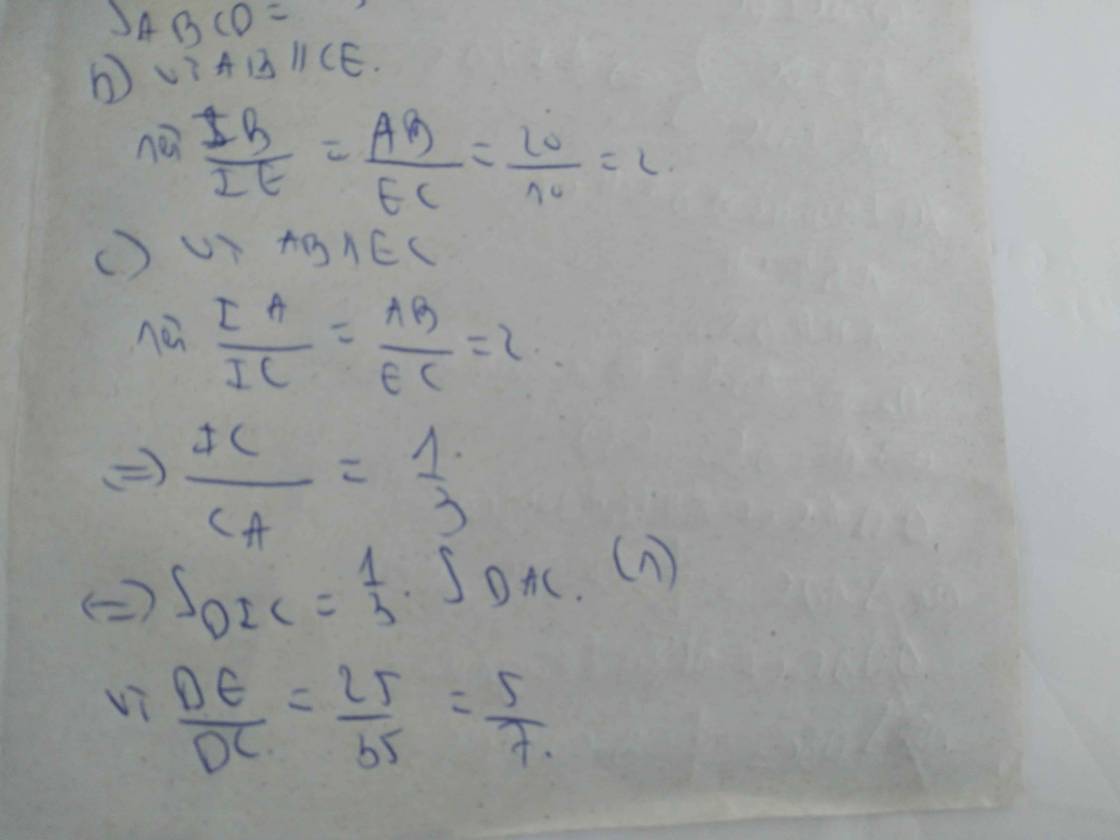 S_ABCD =
b) vì AB // CE.
nên IB/IE = AB/EC = 20/10 = 2.
c) vì AB // EC
nên IA/IC = AB/EC = 2.
=> IC/CA = 1/3
<=> S_DIC = 1/3 . S_DAC. (1)
vì DE/DC = 25/35 = 5/7.